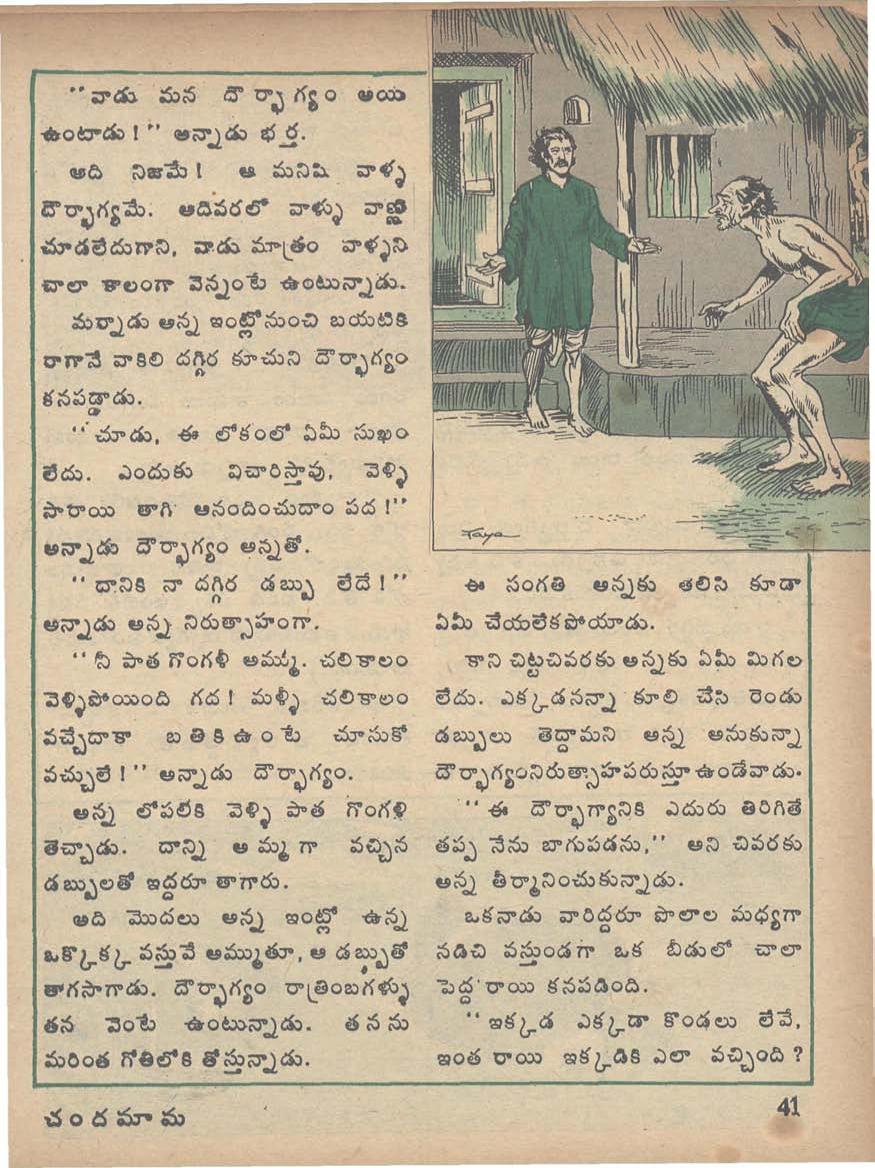 “వాడు మన దౌర్భాగ్యం అయి
ఉంటాడు!” అన్నాడు భర్త.
అది నిజమే! ఆ మనిషి వాళ్ళ
దౌర్భాగ్యమే. ఆదివరలో వాళ్ళు వాణ్ణి
చూడలేదుగాని, వాడు మాత్రం వాళ్ళని
చాలా కాలంగా వెన్నంటే ఉంటున్నాడు.
మర్నాడు అన్న ఇంట్లోనుంచి బయటికి
రాగానే వాకిలి దగ్గిర కూచుని దౌర్భాగ్యం
కనపడ్డాడు.
“చూడు, ఈ లోకంలో ఏమీ సుఖం
లేదు. ఎందుకు విచారిస్తావు, వెళ్ళి
సారాయి తాగి ఆనందించుదాం పద!”
అన్నాడు దౌర్భాగ్యం అన్నతో.
“దానికి నా దగ్గిర డబ్బు లేదే!”
అన్నాడు అన్న నిరుత్సాహంగా.
“నీ పాత గొంగళీ అమ్ము. చలికాలం
వెళ్ళిపోయింది గద! మళ్ళీ చలికాలం
వచ్చేదాకా బతికిఉంటే చూసుకో
వచ్చులే!” అన్నాడు దౌర్భాగ్యం.
అన్న లోపలికి వెళ్ళి పాత గొంగళి
తెచ్చాడు. దాన్ని అమ్మగా వచ్చిన
డబ్బులతో ఇద్దరూ తాగారు.
అది మొదలు అన్న ఇంట్లో ఉన్న
ఒక్కొక్క వస్తువే అమ్ముతూ, ఆ డబ్బుతో
తాగసాగాడు. దౌర్భాగ్యం రాత్రింబగళ్ళు
తన వెంటే ఉంటున్నాడు. తనను
మరింత గోతిలోకి తోస్తున్నాడు.
Yaya
ఈ సంగతి అన్నకు తలిసి కూడా
ఏమీ చేయలేకపోయాడు.
కాని చిట్టచివరకు అన్నకు ఏమీ మిగల
లేదు. ఎక్కడనన్నా కూలి చేసి రెండు
డబ్బులు తెద్దామని అన్న అనుకున్నా
దౌర్భాగ్యంనిరుత్సాహపరుస్తూ ఉండేవాడు.
“ఈ దౌర్భాగ్యానికి ఎదురు తిరిగితే
తప్ప నేను బాగుపడను,” అని చివరకు
అన్న తీర్మానించుకున్నాడు.
ఒకనాడు వారిద్దరూ పొలాల మధ్యగా
నడిచి వస్తుండగా ఒక బీడులో చాలా
పెద్ద రాయి కనపడింది.
“ఇక్కడ ఎక్కడా కొండలు లేవే,
ఇంత రాయి ఇక్కడికి ఎలా వచ్చింది?
చందమామ
41